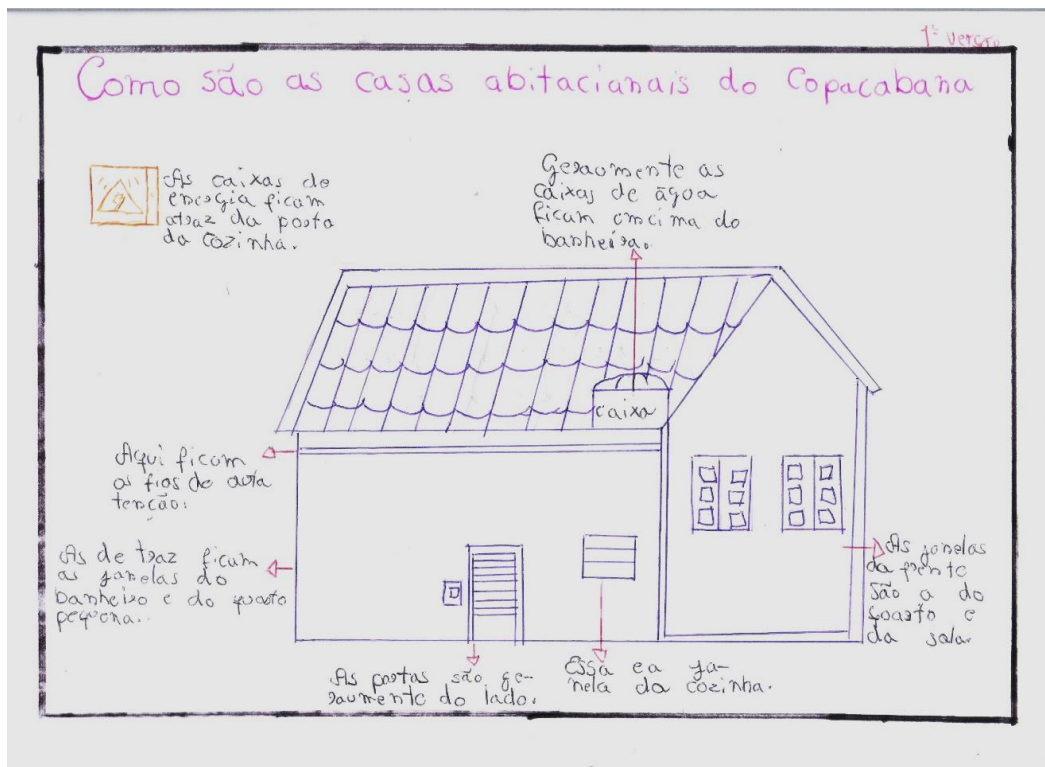 1ª versão
Como são as casas abitacianais do Copacabana
As caixas de
energia ficam
atraz da posta
da cozinha.
Geraomente as
caixas de ágoa
ficam emcima do
banheira.
caixa
Aqui ficam
os fios de auta
tenção.
As de traz ficam
as janelas do
banheiro e do quasto
pequena..
As janelas
da frente
são a do
quasto e
da sala.
As postas são ge-
raumente do lado.
Essa e a ja-
nela da cozinha.